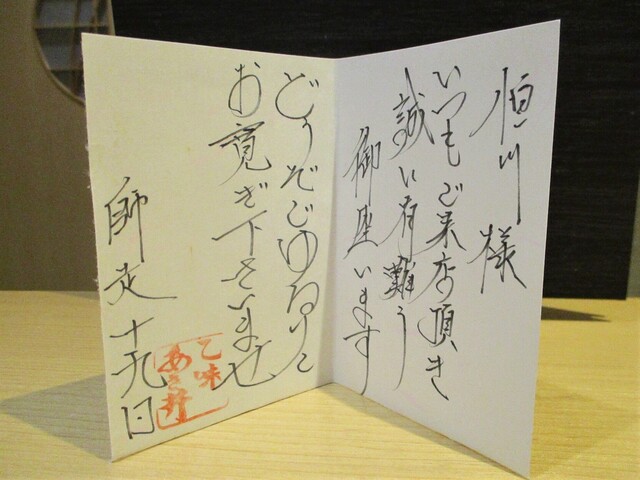 恒川 様
いつもご来店頂き
誠に有難う
御座います
どうぞごゆるりと
お寛ぎ下さいませ
師走十九日
乙味
あき